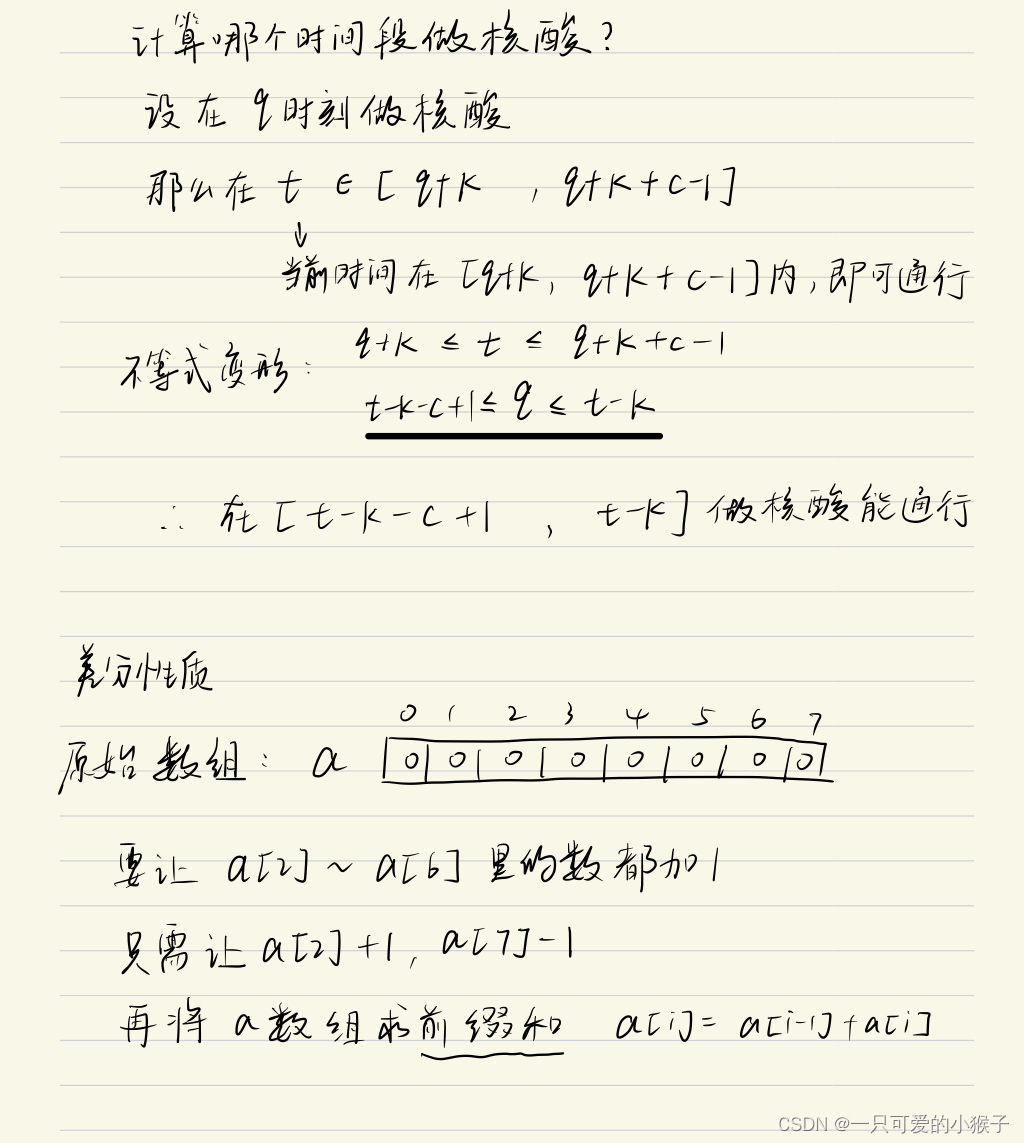 计算哪个时间段做核酸?
设在 q时刻做核酸
那么在 t ∈ [ q+k , q+k+c-1]
↓
当前时间在 [q+k, q+k+c-1]内,即可通行
不等式变形: q+k ≤ t ≤ q+k+c-1
t-k-c+1≤ q ≤ t-k
∴ 在 [t-k-c+1 , t-k] 做核酸能通行
差分性质
0 1 2 3 4 5 6 7
原始数组: a 0 0 0 0 0 0 0 0
要让 a[2] ~ a[6] 里的数都加1
只需让 a[2]+1, a[7]-1
再将 a数组求前缀和 a[i]= a[i-1]+a[i]
CSDN @一只可爱的小猴子